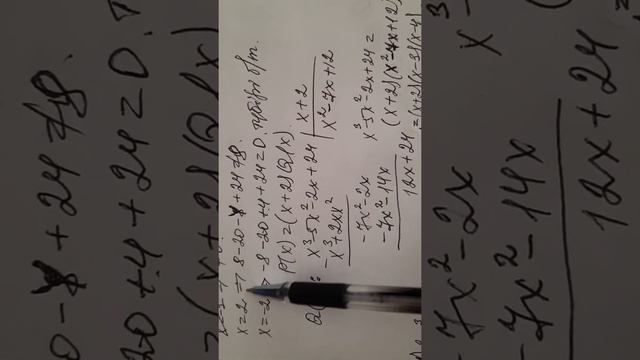 x=2 => 8-20-8+24≠0.
x=-2 => -8-20+4+24=0.
P(x)=(x+2)Q(x)
x³-5x²-2x+24 | x+2
x³+2x² | x²-7x+12
-7x²-2x
-7x²-14x
12x+24
x³-5x²-2x+24=
(x+2)(x²-7x+12)
=(x+2)(x-3)(x-4)